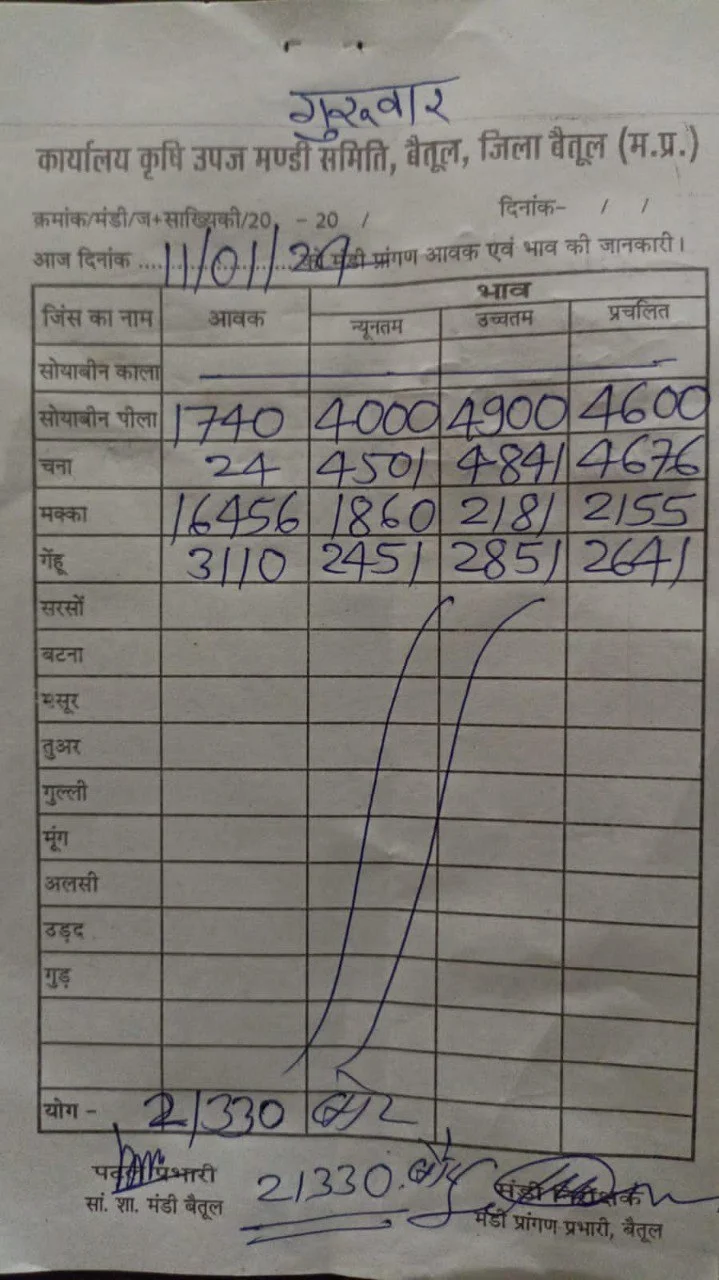 गुरुवार
कार्यालय कृषि उपज मण्डी समिति, बैतूल, जिला बैतूल (म.प्र.)
क्रमांक/मंडी/ज+सांख्यिकी/20 - 20 / दिनांक- / /
आज दिनांक ....11/01/24 को मंडी प्रांगण आवक एवं भाव की जानकारी।
जिंस का नाम आवक भाव
न्यूनतम उच्चतम प्रचलित
सोयाबीन काला
सोयाबीन पीला 1740 4000 4900 4600
चना 24 4501 4841 4676
मक्का 16456 1860 2181 2155
गेंहू 3110 2451 2851 2641
सरसों
बटना
मसूर
तुअर
गुल्ली
मूंग
अलसी
उड़द
गुड़
योग - 21330 बोरे
21330
प्रभारी
सां. शा. मंडी बैतूल
मंडी प्रांगण प्रभारी, बैतूल